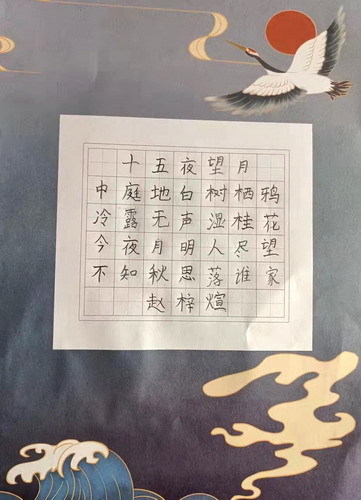 十五夜望月
中庭地白树栖鸦
冷露无声湿桂花
今夜月明人尽望
不知秋思落谁家
赵梓煊